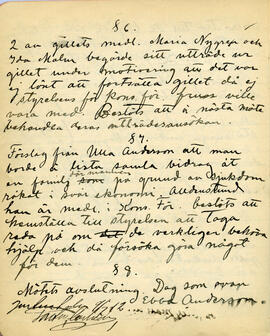 § 6.
2 av gillets medl. Maria Nygren och
Ida Malm begärde sitt utträde ur
gillet under motivering att det var
lönt att fortsätta gillet då ej
styrelsen för Kons. för. ville
vara med. Beslöts att å nästa möte
behandla deras utträdesansökan.
§ 7.
Förslag från Ulla Andersson att man
borde å lista samla bidrag åt
en familj som på grund av sjukdom
råkat i svår ekonomi.
han är medl. i Kons. För. beslöts att
hemställa till styrelsen att taga
reda på om de verkligen behöva
hjälp och då försöka göra något
för dem.
§ 8.
Mötets avslutning. Dag som ovan
Ebba Andersson.